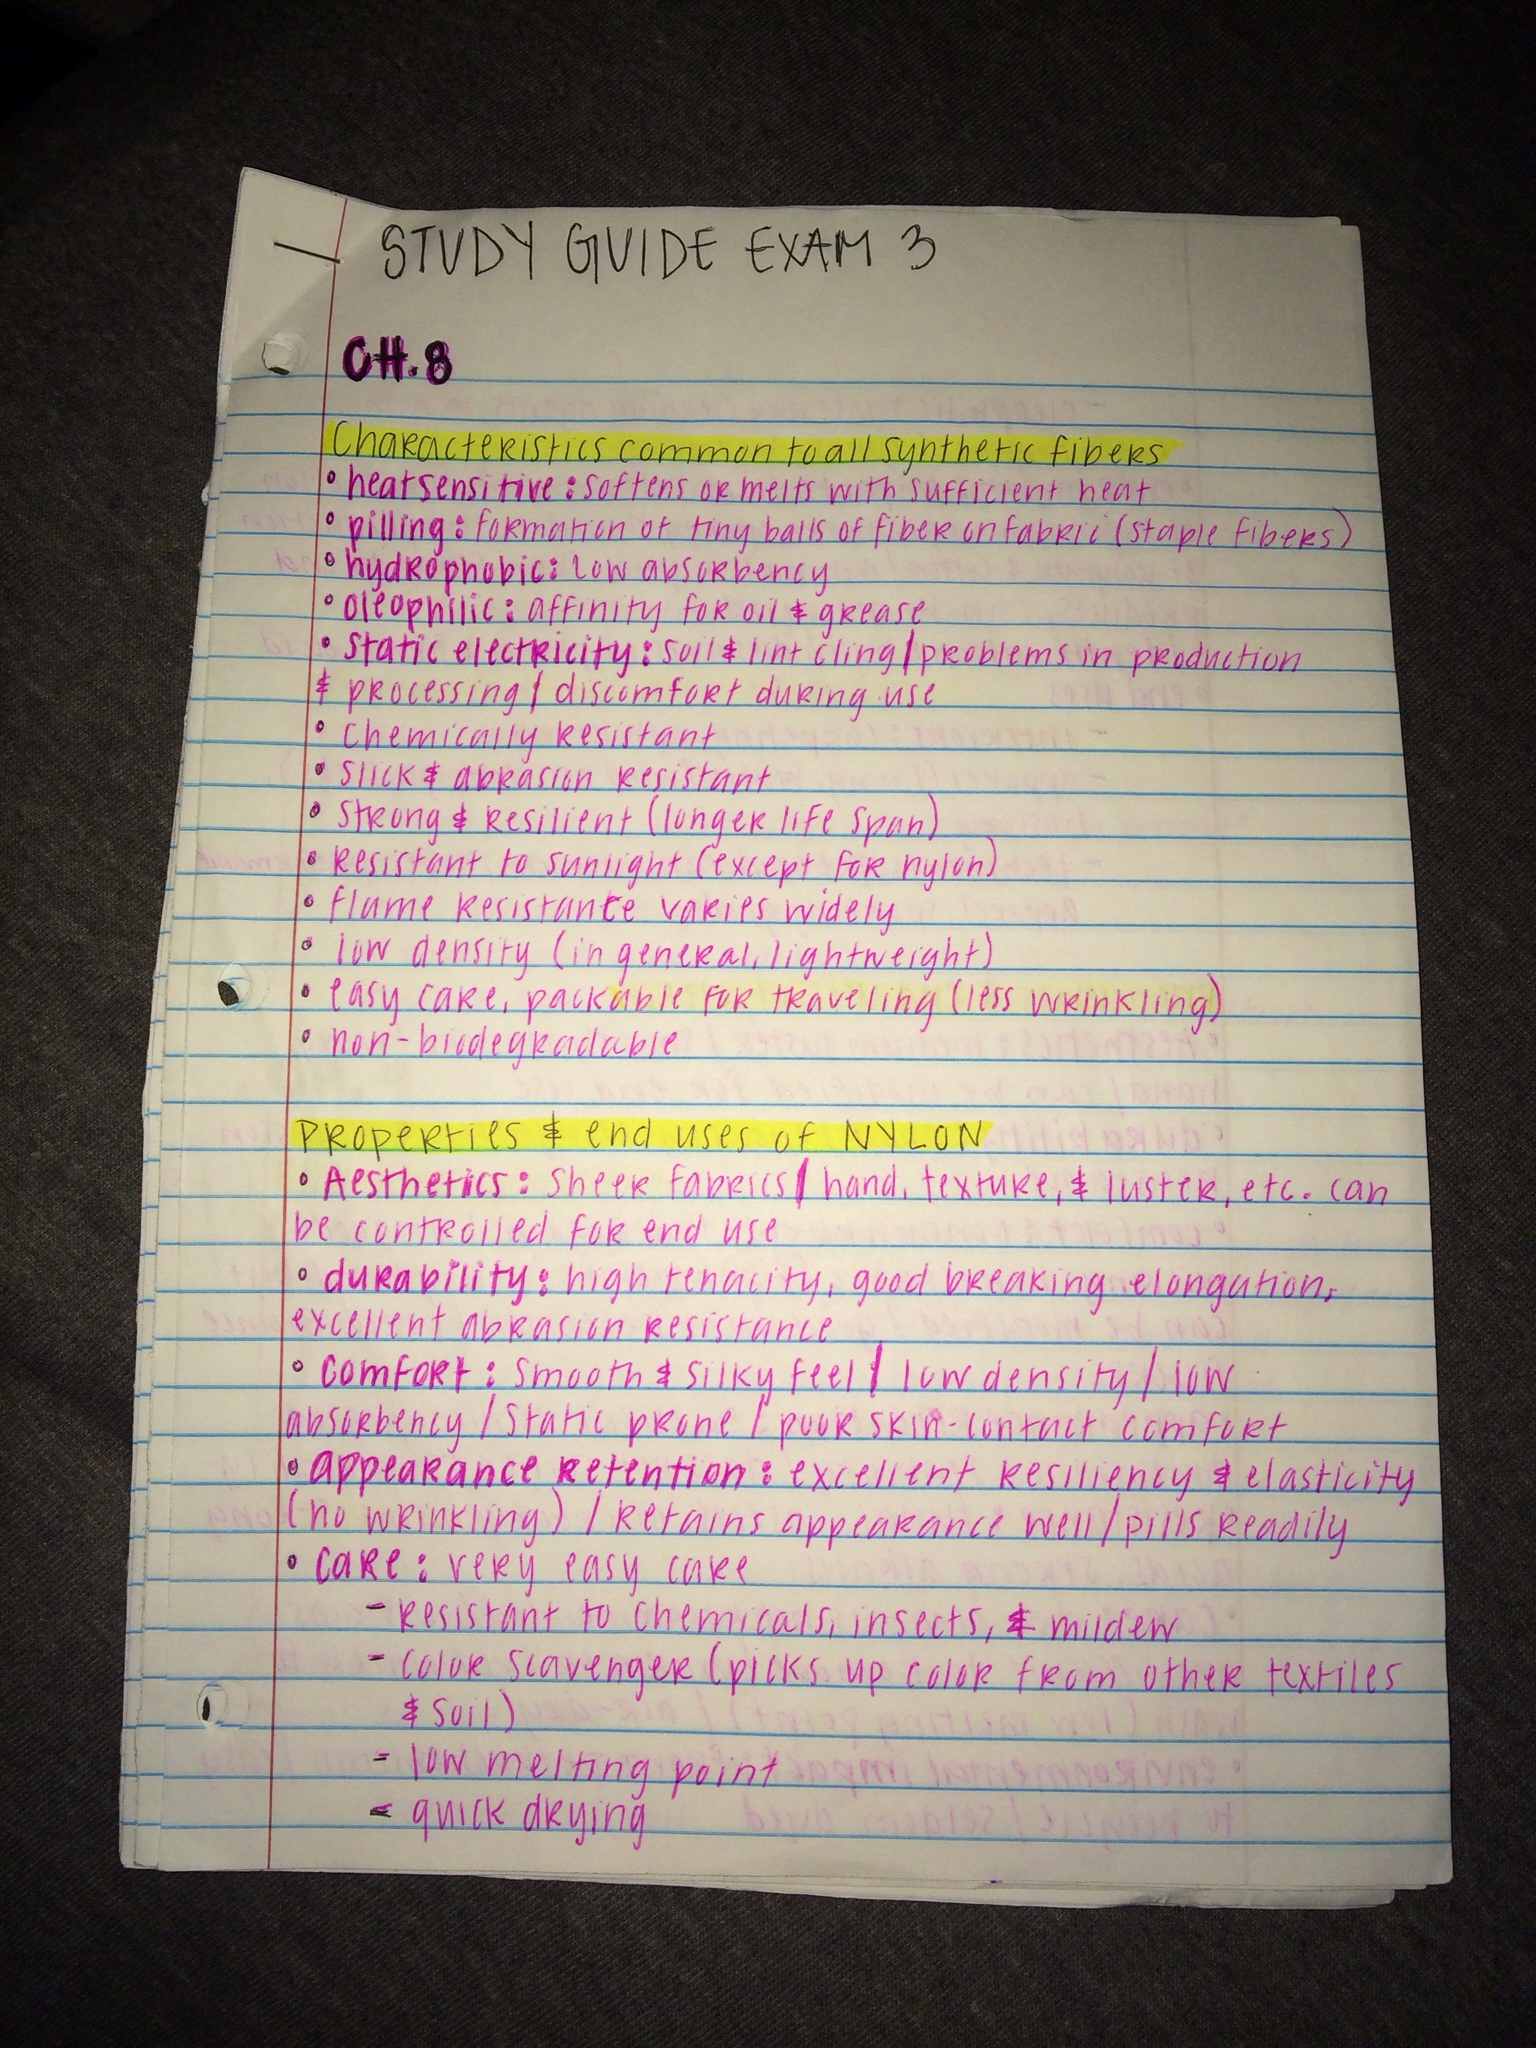 STUDY GUIDE EXAM 3
CH.8
Characteristics common to all synthetic fibers
• heatsensitive: softens or melts with sufficient heat
• pilling: formation of tiny balls of fiber on fabric (staple fibers)
• hydrophobic: low absorbency
• oleophilic: affinity for oil & grease
• static electricity: soil & lint cling/problems in production
& processing/discomfort during use
• chemically resistant
• slick & abrasion resistant
• strong & resilient (longer life span)
• resistant to sunlight (except for nylon)
• flame resistance varies widely
• low density (in general, lightweight)
• easy care, packable for traveling (less wrinkling)
• non-biodegradable
Properties & end uses of NYLON
• Aesthetics: sheer fabrics/hand, texture, & luster, etc. can
be controlled for end use
• durability: high tenacity, good breaking elongation,
excellent abrasion resistance
• comfort: smooth & silky feel/low density/low
absorbency/static prone/poor skin-contact comfort
• appearance retention: excellent resiliency & elasticity
(no wrinkling)/retains appearance well/pills readily
• care: very easy care
- resistant to chemicals, insects, & mildew
- color scavenger (picks up color from other textiles
& soil)
- low melting point
- quick drying